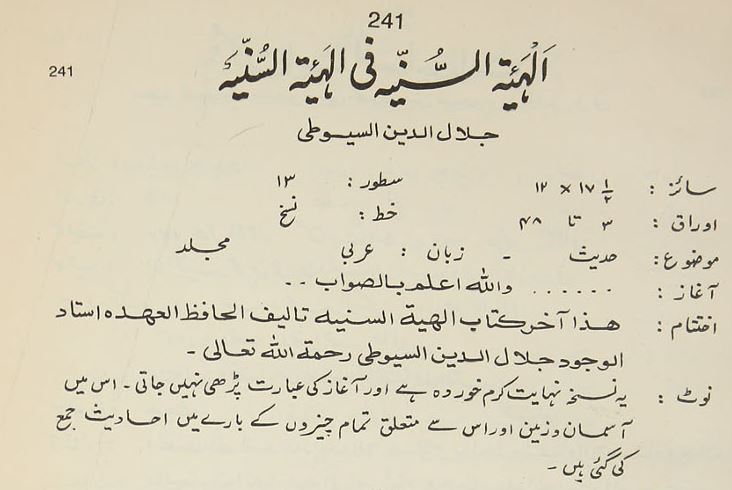 241
241
اَلْهَيْئِةِ السُّنِّيِه فى الهَيْئَةِ السُّنِّيَهْ
جلال الدین السیوطی
سائز : ۱۷ ۱/۲ × ۱۲ سطور : ۱۳
اوراق : ۳ تا ۴۸ خط : نسخ
موضوع : حدیث - زبان : عربی مجلد
آغاز : ...... واللّٰہ اعلم بالصواب ..
اختتام : ھذا آخر کتاب الھیۃ السنیہ تالیف الحافظ العھدہ استاد
الوجود جلال الدین السیوطی رحمۃ اللّٰہ تعالی -
نوٹ : یہ نسخہ نہایت کرم خوردہ ہے اور آغاز کی عبارت پڑھی نہیں جاتی - اس میں
آسمان و زمین اور اس سے متعلق تمام چیزوں کے بارے میں احادیث جمع
کی گئی ہیں -